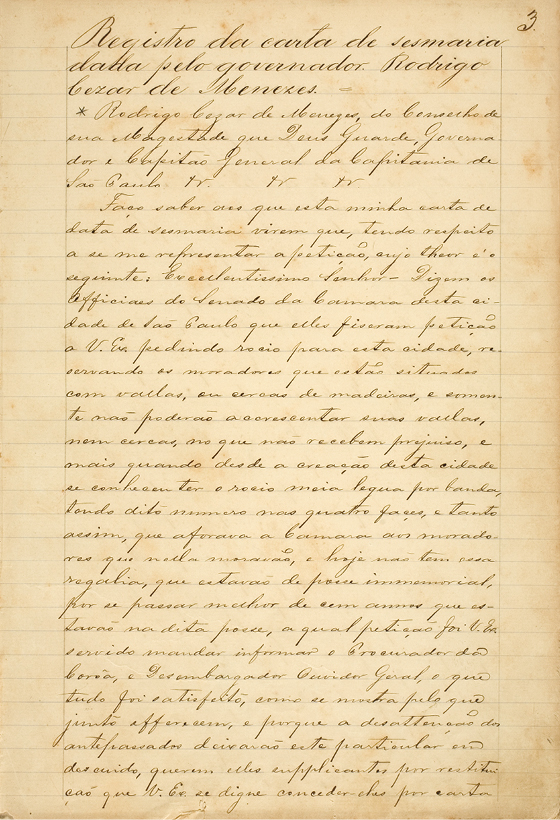 3.
Registro da carta de sesmaria
dada pelo governador Rodrigo
Cezar de Menezes.
* Rodrigo Cezar de Menezes, do Conselho de
sua Magestade que Deus Guarde, Governa
dor e Capitão General da Capitania de
São Paulo &r. &r. &r.
Faço saber aos que esta minha carta de
data de sesmaria virem que, tendo respeito
a se me representar a petição, cujo theor é o
seguinte: Excellentissimo Senhor – Dizem os
Officiaes do Senado da Camara desta ci-
dade de São Paulo que elles fiseram petição
a V. Ex. pedindo rocio para esta cidade, re-
servando os moradores que estão situados
com vallas, ou cercas de madeiras, e somen-
te não poderão accrescentar suas vallas,
nem cercas, no que não recebem prejuiso, e
mais quando desde a creação desta cidade
se conheceu ter o rocio meia legua por banda,
tendo dito numero nas quatro faces, e tanto
assim, que aforava a Camara aos morado-
res que nella moravão, e hoje não tem essa
regalia, que estavão de posse immemorial,
por se passar melhor de cem annos que es-
tavão na dita posse, a qual petição foi V. Ex.
servido mandar informar o Procurador da
Corôa, e Desembargador Ouvidor Geral, o que
tudo foi satisfeito, como se mostra pelo que
junto offerecem, e porque a desattenção dos
antepassados deixarão este particular em
descuido, querem elles supplicantes por restitui
ção que V. Ex. se digne conceder-lhes por carta